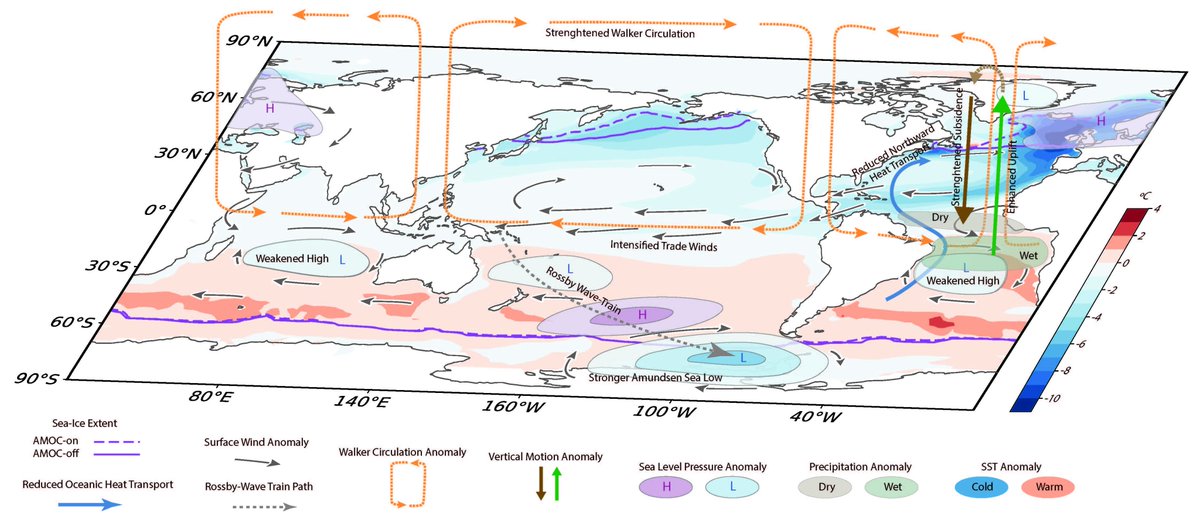 Strenghtened Walker Circulation
90°N
60°N
30°N
0°
30°S
60°S
90°S
80°E
140°E
160°W
100°W
40°W
H
L
H
Reduced Northward
Heat Transport
Strenghtened Subsidence
Enhanced Uplift
Dry
Wet
Intensified Trade Winds
Weakened High
L
L
Rossby Wave-Train
H
L
Weakened High
L
Stronger Amundsen Sea Low
°C
4
2
0
-2
-4
-6
-8
-10
Sea-Ice Extent
AMOC-on
AMOC-off
Reduced Oceanic Heat Transport
Surface Wind Anomaly
Rossby-Wave Train Path
Walker Circulation Anomaly
Vertical Motion Anomaly
Sea Level Pressure Anomaly
H
L
Precipitation Anomaly
Dry
Wet
SST Anomaly
Cold
Warm